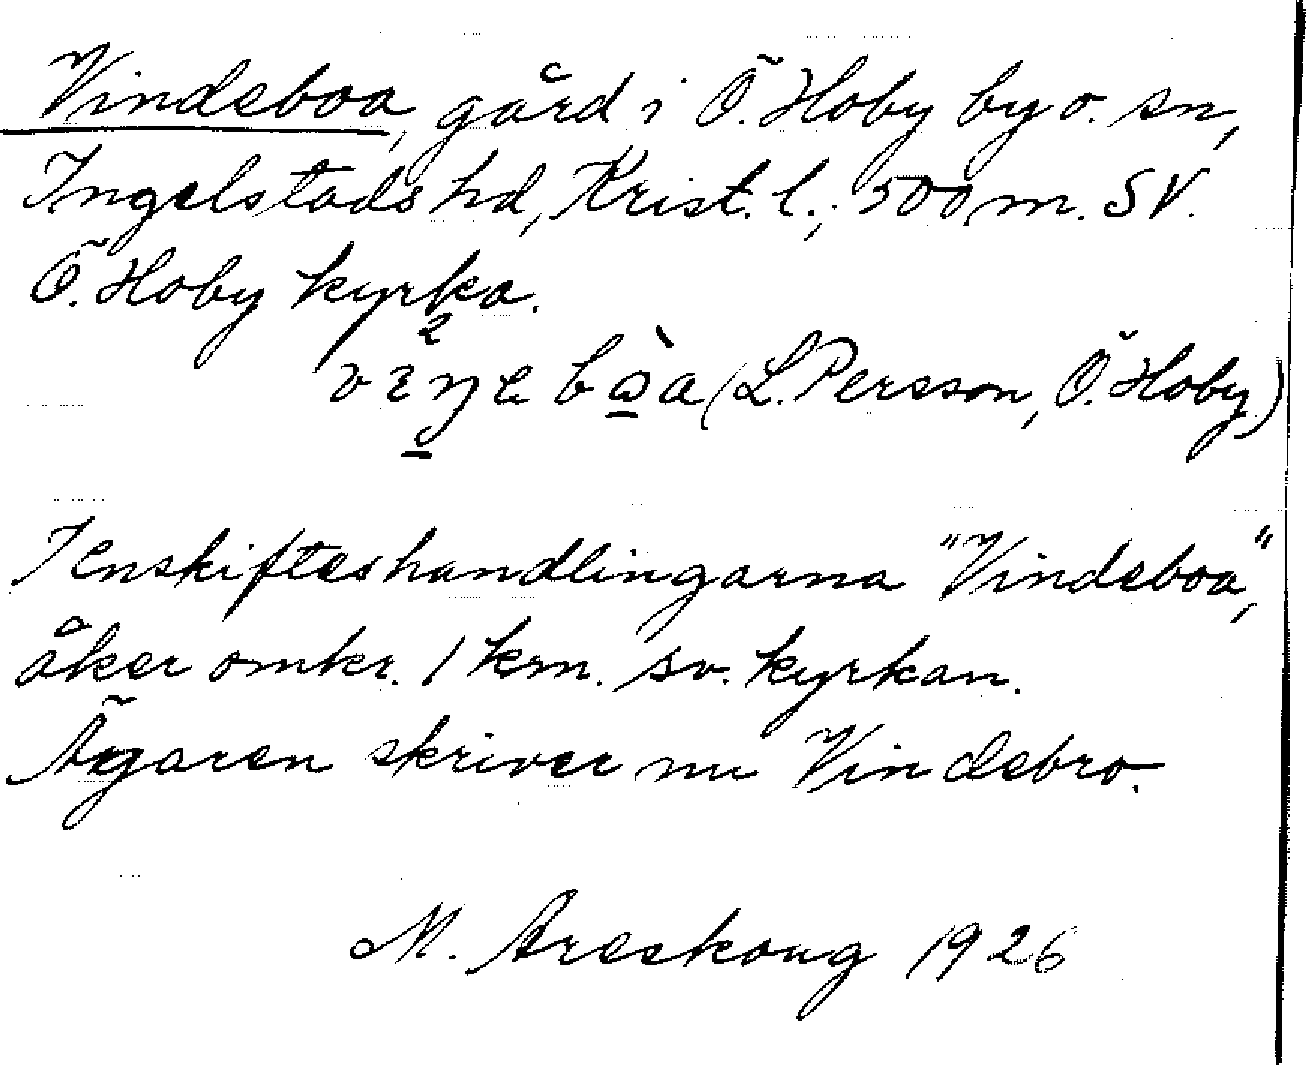 Vindeboa, gård i Ö. Hoby by o. sn,
Ingelstads hd, Krist. l., 500 m. SV.
Ö. Hoby kyrka.
(L. Persson, Ö. Hoby)
I enskifteshandlingarna "Vindeboa,"
åker omkr. 1 km. sv. kyrkan.
Ägaren skriver nu Vindebro.
M. Areskoug 1926